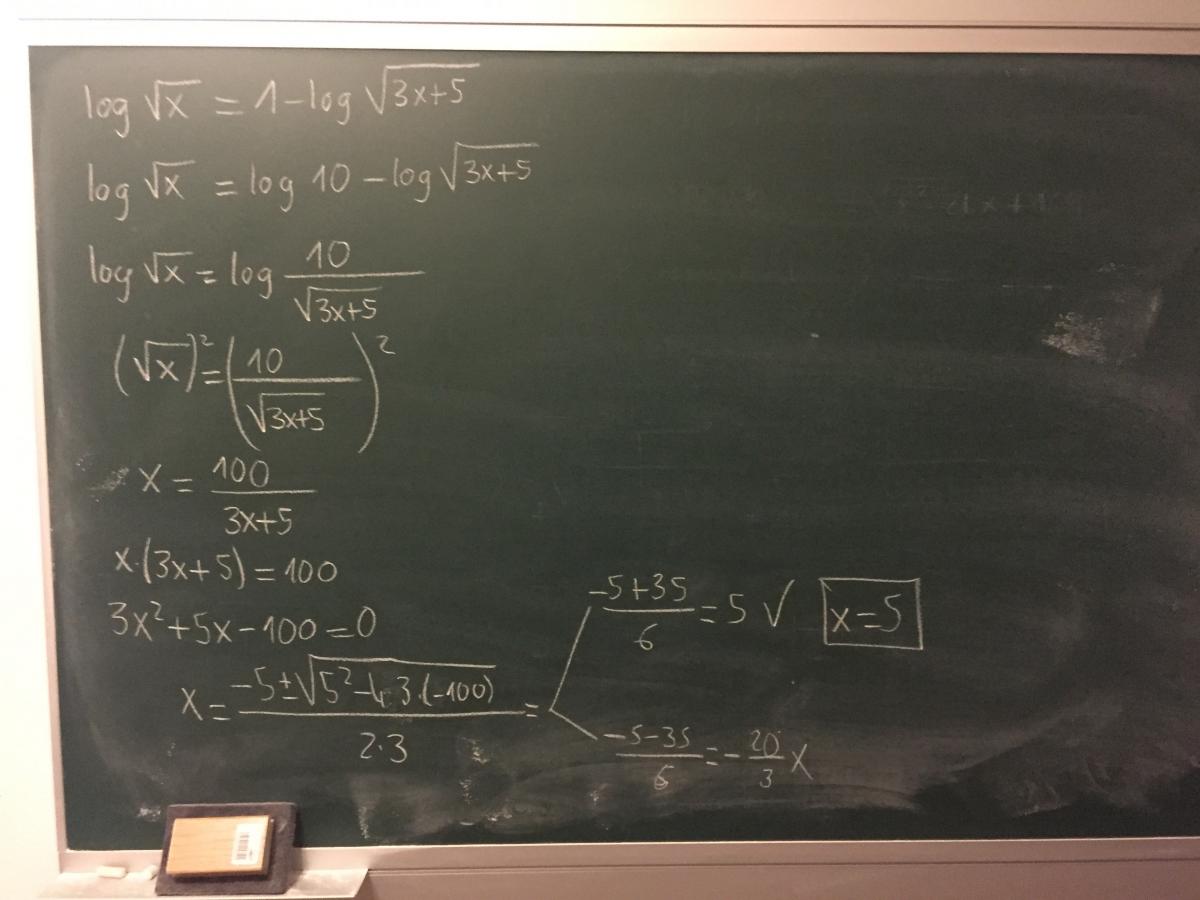 log √x = 1 - log √(3x+5)
log √x = log 10 - log √(3x+5)
log √x = log 10/√(3x+5)
(√x)² = (10/√(3x+5))²
x = 100/(3x+5)
x·(3x+5) = 100
3x²+5x-100=0
x = (-5±√(5²-4·3·(-100)))/(2·3) =
(-5+35)/6 = 5 √ x=5
(-5-35)/6 = -20/3 X